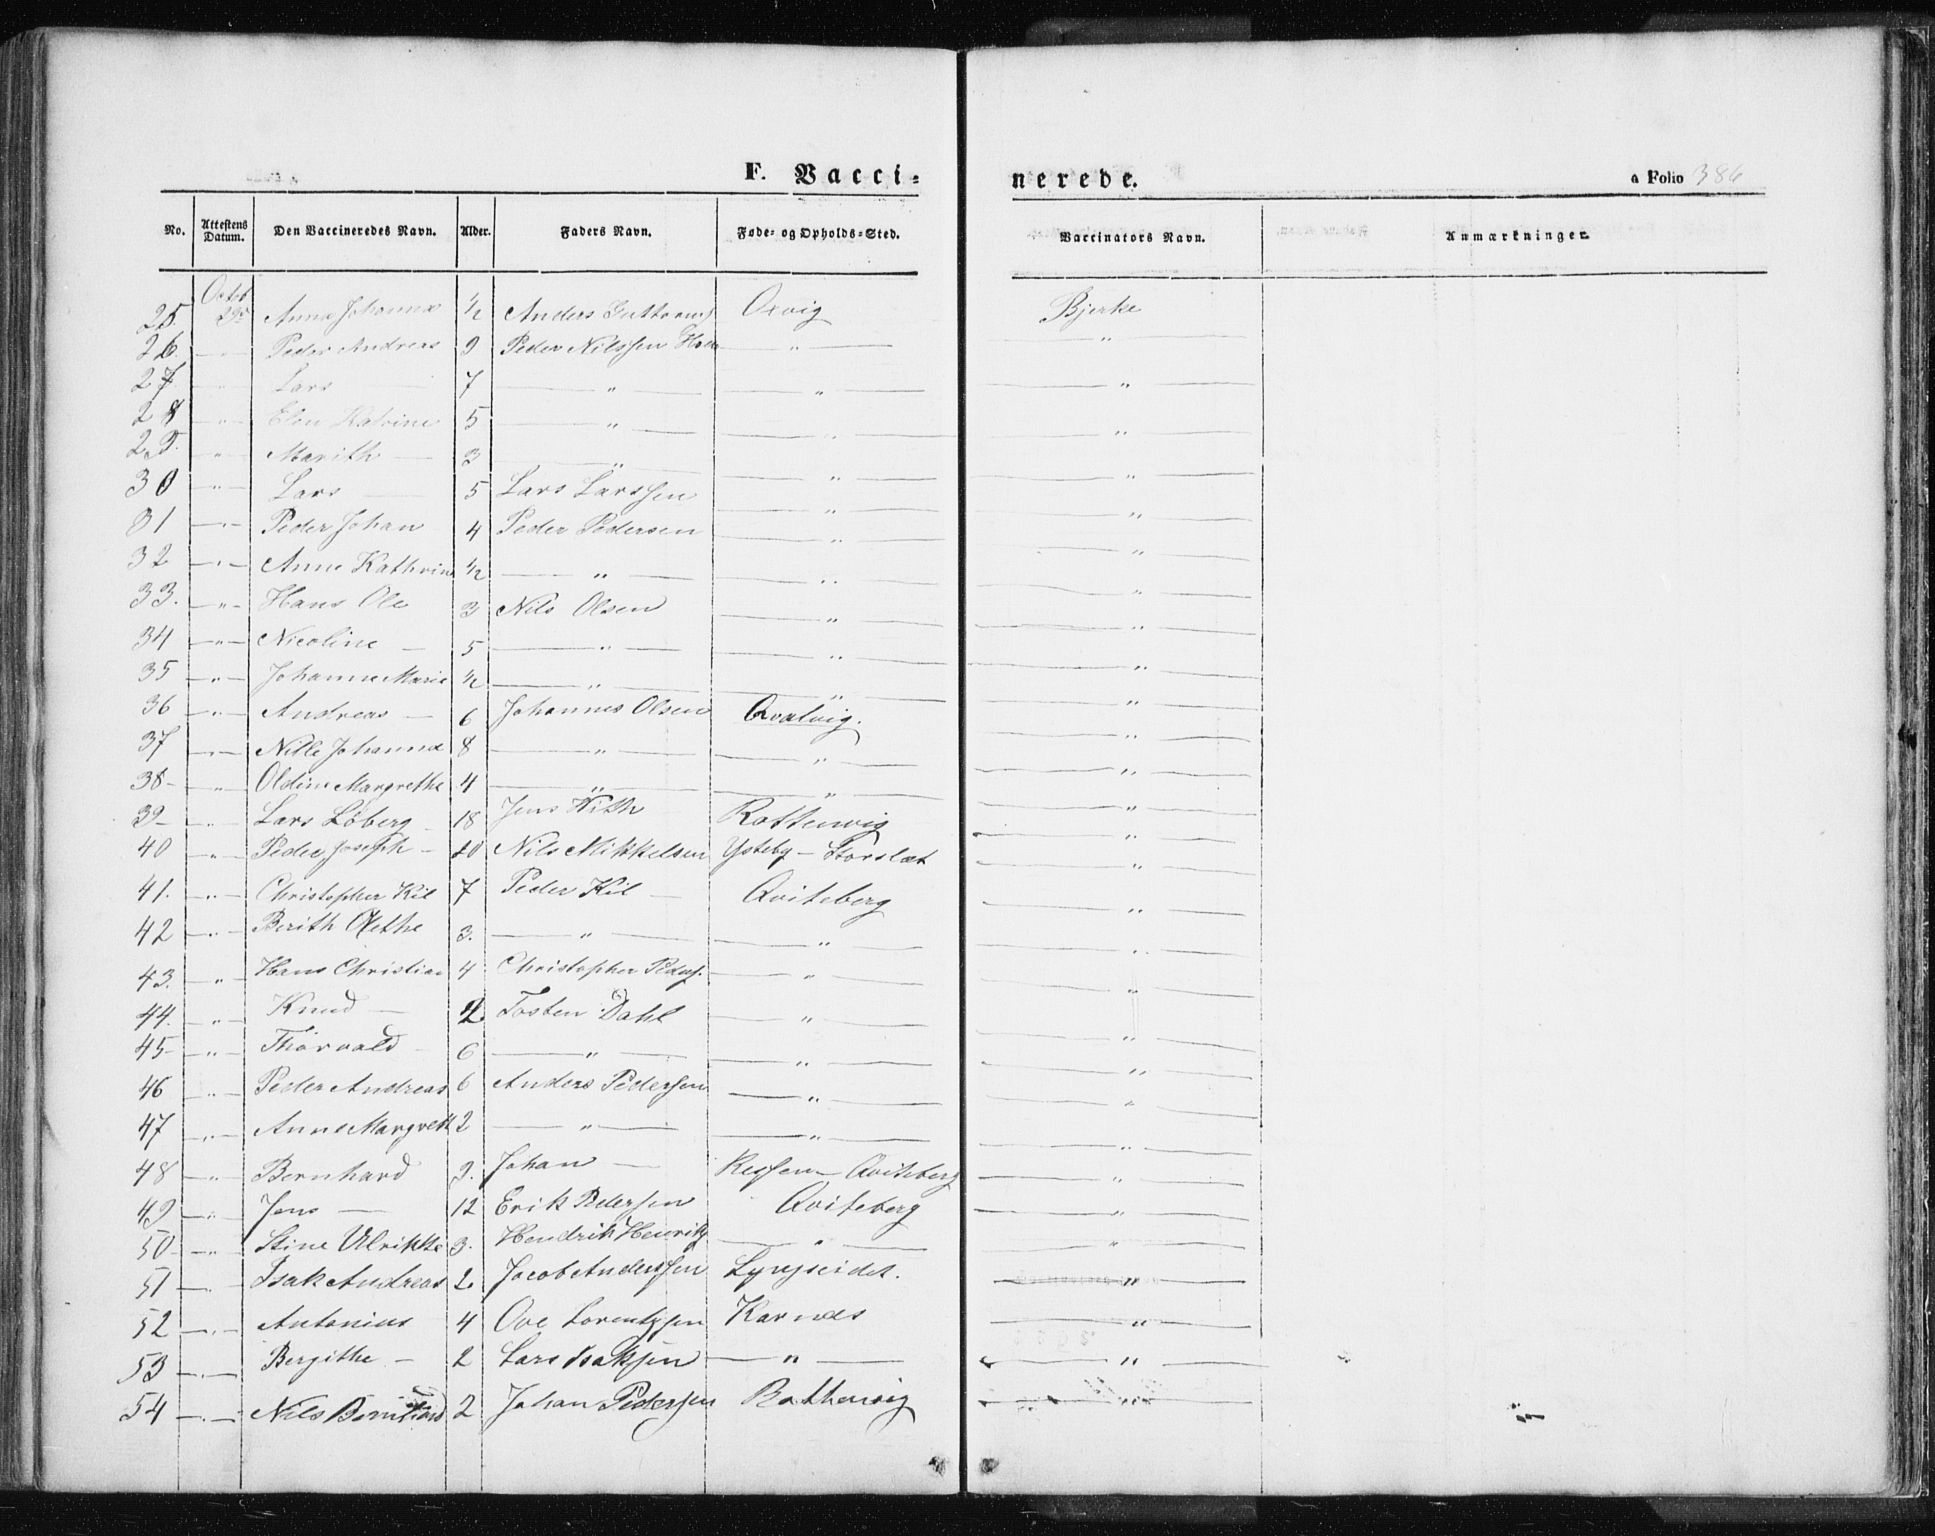 F. Vacci=
nerede.
a Folio 386
No. Attestens Datum. Den Vaccineredes Navn. Alder. Faders Navn. Føde- og Opholds-Sted. Vaccinators Navn. Anmærkninger.
25. Octob 29 Anna Johanna ½ Anders Guttorms Oxvig Bjerke
26. — " — Peder Andreas 9 Peder Nilssen — " — — " —
27 — " — Lars — 7 — " — — " — — " —
28 — " — Elen Katrine 5 — " — — " — — " —
29. — " — Marith — 3 — " — — " — — " —
30 — " — Lars — 5 Lars Larssen — " — — " —
31 — " — Peder Johan 4 Peder Pedersen — " — — " —
32 — " — Anne Kathrin ½ — " — — " — — " —
33. — " — Hans Ole 3 Nils Olsen — " — — " —
34 — " — Nicoline — 5 — " — — " — — " —
35 — " — Johanne Marie ½ — " — — " — — " —
36 — " — Andreas — 6 Johannes Olsen Qvalvig. — " —
37 — " — Nille Johanna 8 — " — — " — — " —
38- — " — Oldine Margrethe 4 — " — — " — — " —
39- — " — Lars Løberg 18 Jens Hith Rottenvig — " —
40 — " — Peder Joseph — 20 Nils Mikkelsen Ysteby — Storslet — " —
41. — " — Christopher Kil 7 Peder Kil — Qviteberg — " —
42 — " — Berith Olethe 3. — " — — " — — " —
43. — " — Hans Christian 4 Christopher Peders. — " — — " —
44. — " — Knud — 2 Tosten Dahl — " — — " —
45- — " — Thorvald — 6 — " — — " — — " —
46 — " — Peder Andreas 6 Anders Pedersen — " — — " —
47 — " — Anne Margreth 2 — " — — " — — " —
48 — " — Bernhard 3. Johan — Qviteberg — " —
49 — " — Jens — 12 Erik Pedersen Qviteberg — " —
50- — " — Stine Ulrikke 3. Hendrik Henriks — " — — " —
51 — " — Isak Andreas 2 Jacob Anderssen Lyngseidet. — " —
52 — " — Antonius 4 Ove Lorentzsen Karnes — " —
53 — " — Bergithe — 2 Lars Isaksen — " — — " —
54 — " — Nils Bernhard 2 Johan Pedersen Rottenvig — " —